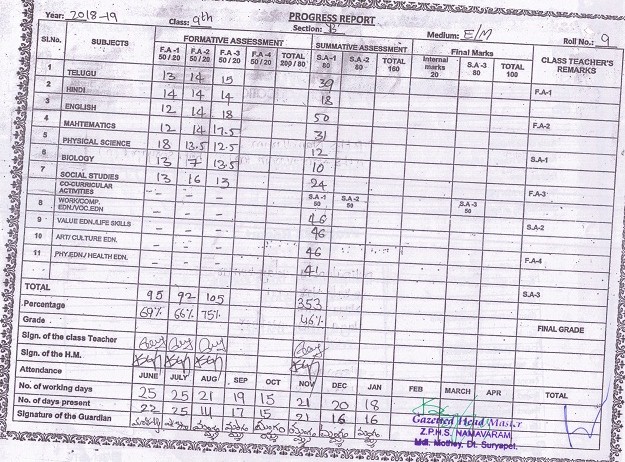 Year: 2018-19
PROGRESS REPORT
Class: 9th Section: B Medium: E/M Roll No.: 9
Sl.No. SUBJECTS FORMATIVE ASSESSMENT SUMMATIVE ASSESSMENT Final Marks CLASS TEACHER'S REMARKS
F.A -1 50 / 20 F.A -2 50 / 20 F.A -3 50 / 20 F.A -4 50 / 20 TOTAL 200 / 80 S.A -1 80 S.A -2 80 TOTAL 160 Internal marks 20 S.A -3 80 TOTAL 100
1 TELUGU 13 14 15 39 F.A-1
2 HINDI 14 14 14 18
3 ENGLISH 12 14 18 50 F.A-2
4 MAHTEMATICS 12 14 17.5 31
5 PHYSICAL SCIENCE 18 13.5 12.5 12 S.A-1
6 BIOLOGY 13 7 13.5 10
7 SOCIAL STUDIES 13 16 13 24 F.A-3
CO-CURRICULAR ACTIVITIES - - - S.A -1 50 S.A -2 50 S.A -3 50
8 WORK/COMP. EDN/VOC.EDN - - - 46 S.A-2
9 VALUE EDN./LIFE SKILLS - - - 46
10 ART/ CULTURE EDN. - - - 46 F.A-4
11 PHY.EDN./ HEALTH EDN. - - - 41
S.A-3
TOTAL 95 92 105 353
Percentage 69% 66% 75% 46%
Grade FINAL GRADE
Sign. of the class Teacher
Sign. of the H.M.
Attendance JUNE JULY AUG SEP OCT NOV DEC JAN FEB MARCH APR TOTAL
No. of working days 25 25 21 19 15 21 20 18
No. of days present 22 25 14 17 15 21 16 16
Signature of the Guardian
Gazetted Head Master
Z.P.H.S. NAMAVARAM
Mdl. Mothey, Dt. Suryapet.